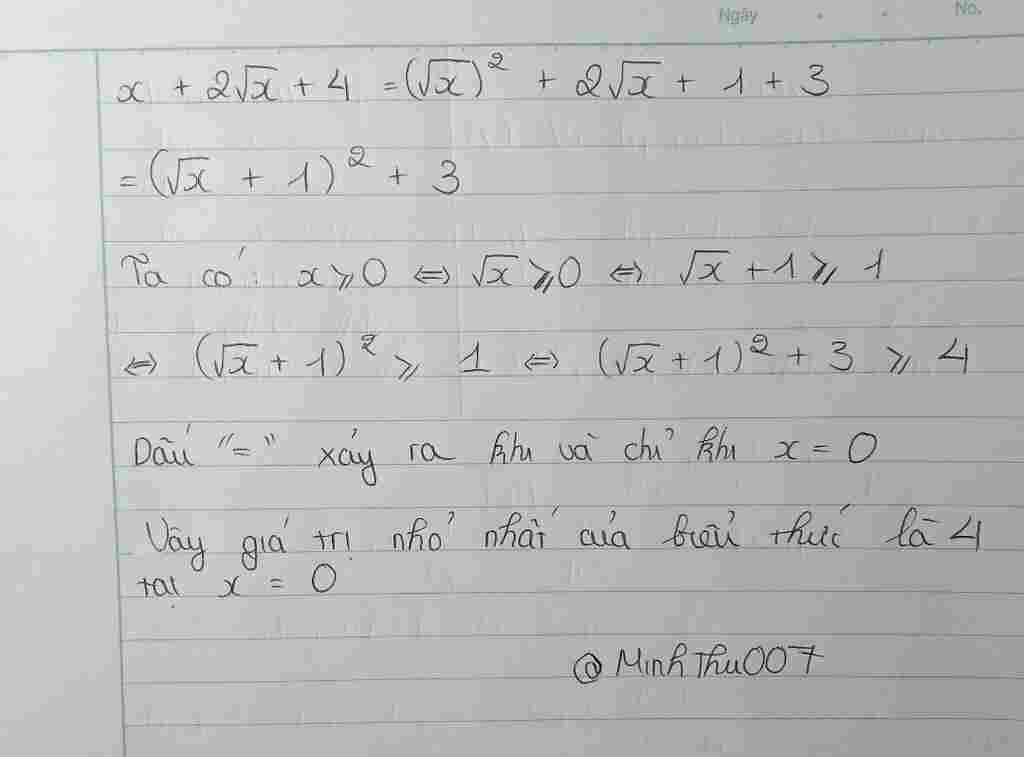 Ngày . . No.
x + 2√x + 4 = (√x)² + 2√x + 1 + 3
= (√x + 1)² + 3
Ta có: x ⩾ 0 ⇔ √x ⩾ 0 ⇔ √x + 1 ⩾ 1
⇔ (√x + 1)² ⩾ 1 ⇔ (√x + 1)² + 3 ⩾ 4
Dấu "=" xảy ra khi và chỉ khi x = 0
Vậy giá trị nhỏ nhất của biểu thức là 4
tại x = 0
@MinhThu007